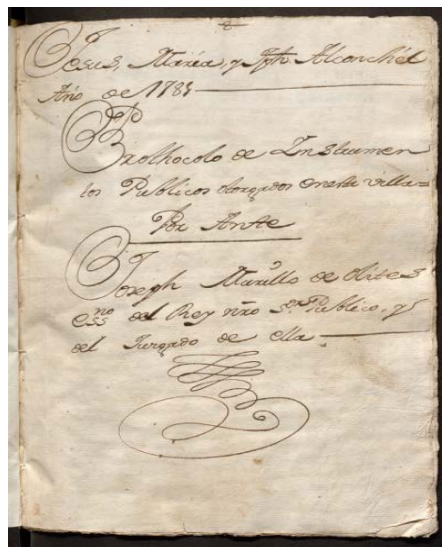 Jesus, Maria, y Jph. Alconchel
Año de 1785
Prothocolo de Instrumen
tos Publicos otorgados en esta villa=
Por Ante
Joseph Murillo de Olibes
essno del Rey nro sr. Publico, y
del Jurgado de ella